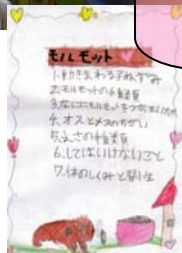 モルモット
1.動きまわる子ねずみ
2.モルモットの種類
4.オスとメスのちがい
5.えさの種類
6.してはいけないこと
7.体のしくみと習性